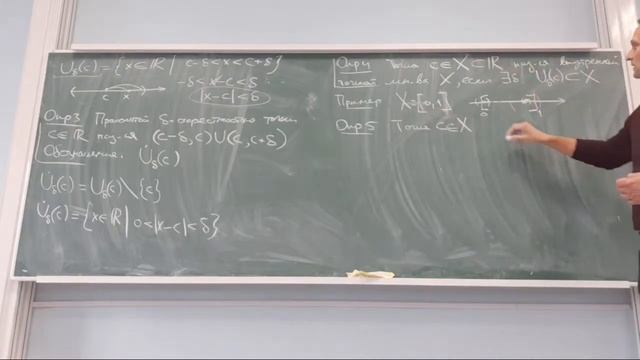 U_δ(c) = {x∈ℝ | c-δ<x<c+δ}
-δ<x-c<δ
|x-c|<δ
c x
Опр3 Проколотой δ-окрестностью точки
c∈ℝ наз-ся (c-δ, c)∪(c, c+δ)
Обозначение. U̇_δ(c)
U̇_δ(c) = U_δ(c) \ {c}
U̇_δ(c) = {x∈ℝ | 0<|x-c|<δ}
Опр4 Точка c∈X⊂ℝ наз-ся внутренней
точкой мн-ва X, если ∃δ U_δ(c)⊂X
Пример X=[0,1]
0 1
Опр5 Точка c∈X